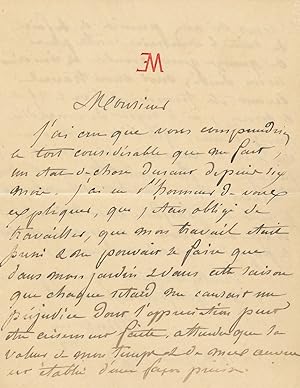 EM
Monsieur
J'ai cru que vous comprendriez
le tort considérable que me fait
un état de chose durant depuis six
mois. J'ai eu l'honneur de vous
expliquer, que j'étais obligé de
travailler, que mon travail était
pressé & ne pouvait se faire que
dans mon jardin & dans cette saison
que chaque retard me causait un
préjudice dont l'appréciation peut
être aisément faite, attendu que la
valeur de mon temps et de mes
est établie d'une façon précise.